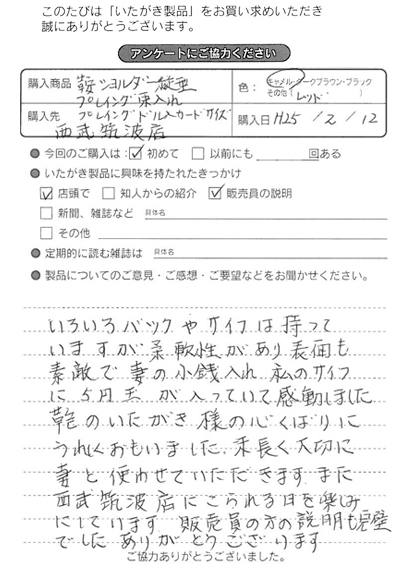 このたびは「いたがき製品」をお買い求めいただき
誠にありがとうございます。
アンケートにご協力ください
購入商品 鞍ショルダー縦型
プレイング束入れ
色： キャメル・ダークブラウン・ブラック
その他（ レッド ）
購入先 プレイングドル入カードサイズ
西武筑波店
購入日 H25 / 2 / 12
今回のご購入は： 初めて 以前にも 回ある
いたがき製品に興味を持たれたきっかけ
店頭で 知人からの紹介 販売員の説明
新聞、雑誌など 具体名
その他
定期的に読む雑誌は 具体名
製品についてのご意見・ご感想・ご要望などをお聞かせください。
いろいろバックやサイフは持って
いますが柔軟性があり表面も
素敵で妻の小銭入れ 私のサイフ
に5円玉が入っていて感動しました
鞄のいたがき様の心くばりに
うれしくおもいました 末長く大切に
妻と使わせていただきます また
西武筑波店にこられる日を楽しみ
にしています 販売員の方の説明も完璧
でした ありがとうございます
ご協力ありがとうございました。